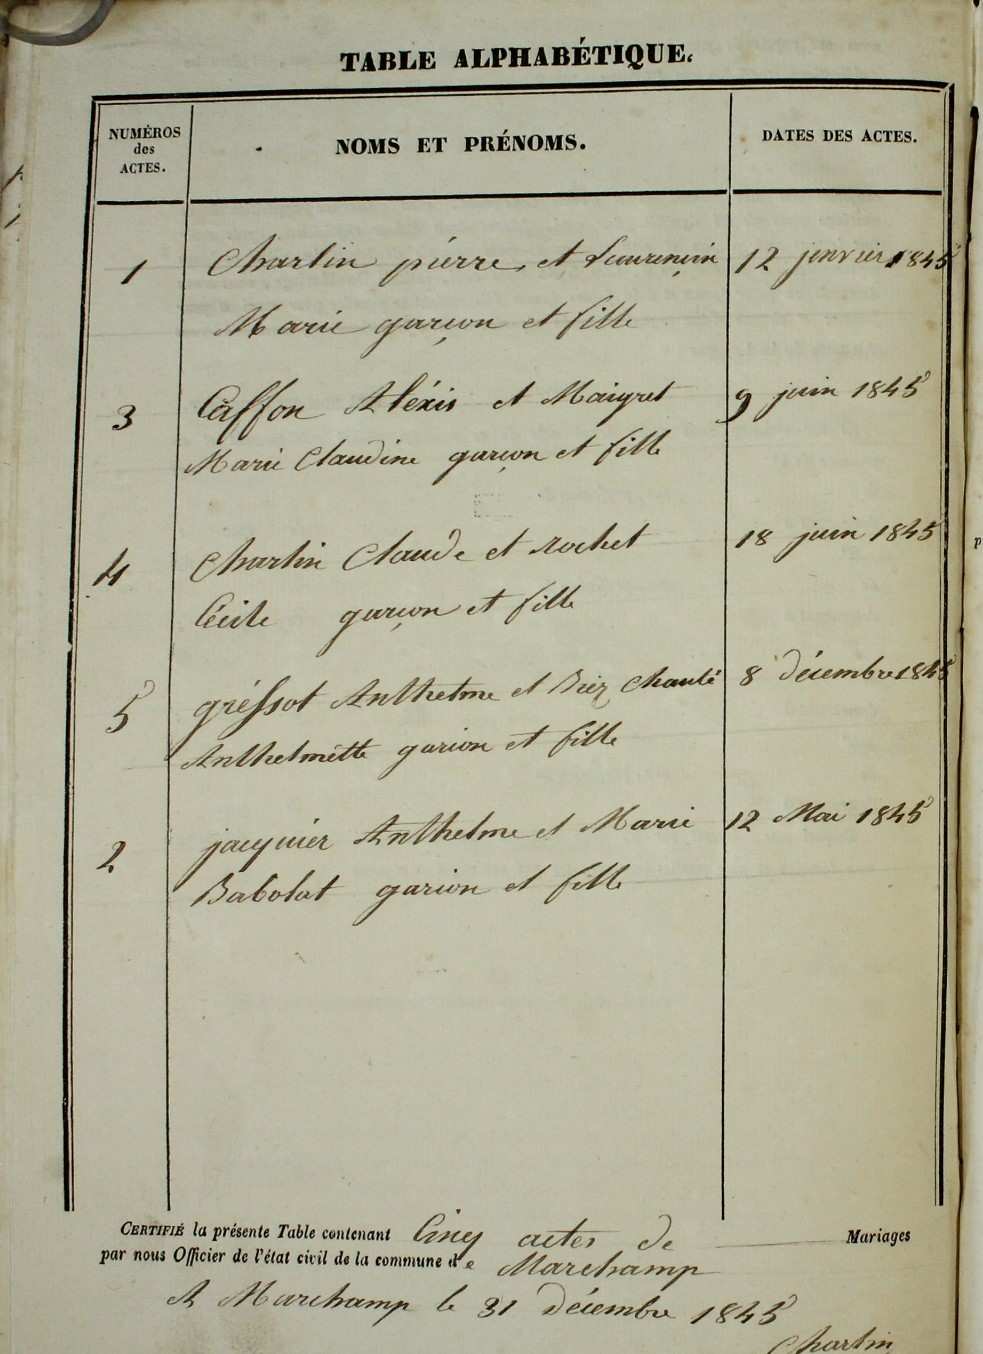 TABLE ALPHABÉTIQUE.
NUMÉROS
des
ACTES.
NOMS ET PRÉNOMS.
DATES DES ACTES.
1 Charlin pierre et Laurençin 12 janvier 1845
Marie garçon et fille
3 Caffon Aléxis et Maigret 9 juin 1845
Marie Claudine garçon et fille
4 Charlin Claude et rochet 18 juin 1845
Cécile garçon et fille
5 gréssot Anthelme et Biez Chaulé 8 décembre 1845
Anthelmette garion et fille
2 jacquiér Anthelme et Marie 12 Mai 1845
Babolat garion et fille
CERTIFIÉ la présente Table contenant Cinq actes de Mariages
par nous Officier de l'état civil de la commune de Marchamp
A Marchamp le 31 décembre 1845
Charlin